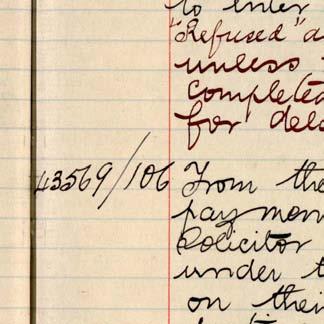 to enter
"Refused" a
unless
completed
for del
43569/106 From the
pay mon
Solicitor
under t
on thei